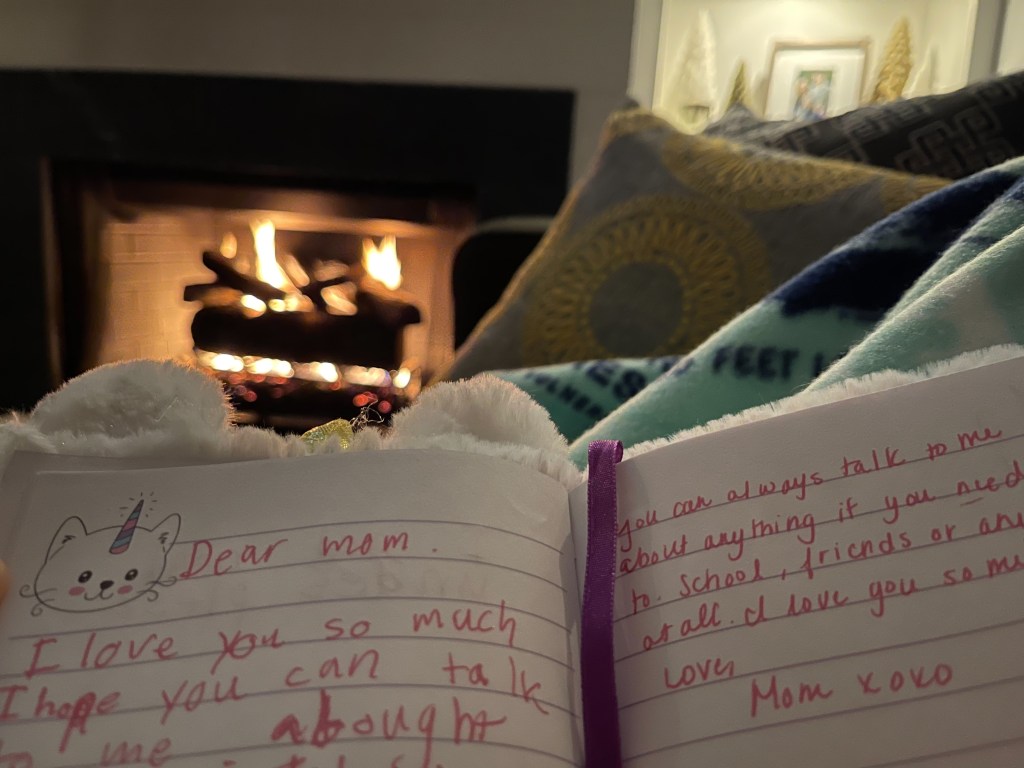 Dear mom.
I love you so much
I hope you can talk
to me abought
you can always talk to me
about anything if you need
to. School, friends or any
at all. I love you so mu
Love,
Mom xoxo
FEET